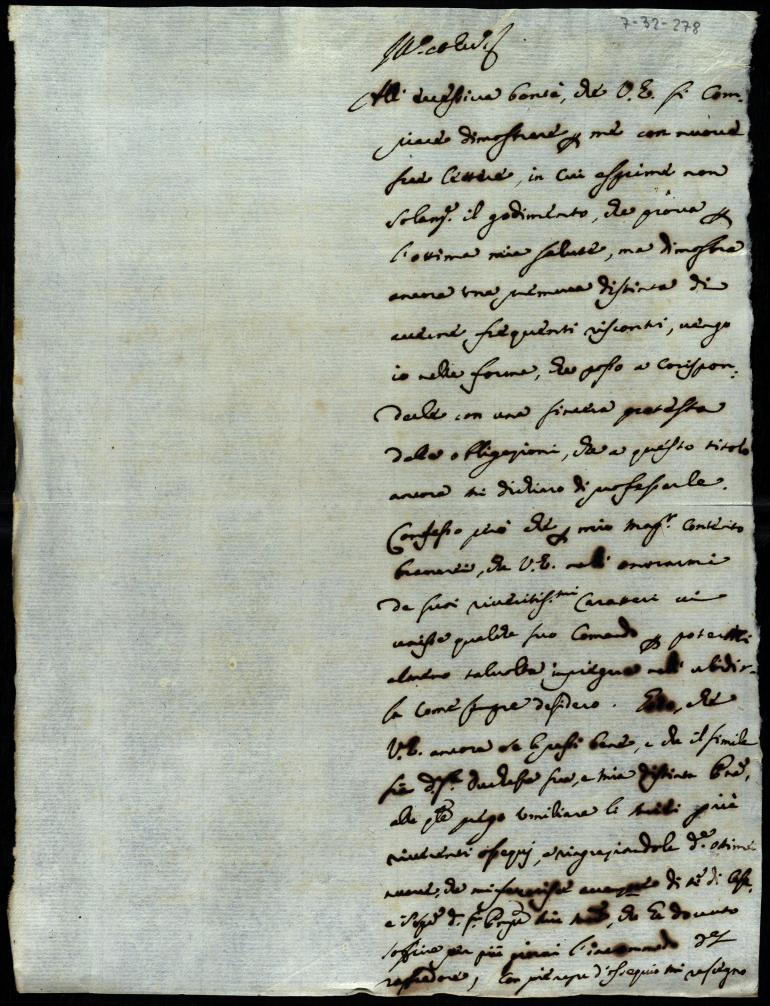 7-32-278
All' eccessiva bontà, che V. E. si Com-
piace dimostrare me con nuove
sue lettere, in cui esprime non
Solam.e il godimento, che prova
l'ottima mia salute, ma dimostra
ancora una premura distinta di
averne frequenti riscontri, vengo
io nelle forme, che posso a corispon-
derle con una sincera protesta
delle obbligazioni, che a questo titolo
ancora mi dichiaro di professarle.
Confesso però che mio mag.r contento
bramerei, che V. E. nell' onorarmi
de suoi riveritis.mi Caratteri vi
unisse qualche suo Comando potermi
almeno talvolta impiegare nell' ubidir-
la come sempre desidero. Godo, che
V. E. ancora se la passi bene, e che il simile
sia Duchessa sua, e mia distinta
alle prego umiliare li miei più
riverenti ossequj, e ringraziandola d. ottime
nuove, che mi di
che ha dovuto
soffrire per più giorni l'incommodo del
rafredore, Con pieneza d'ossequio mi rassegno